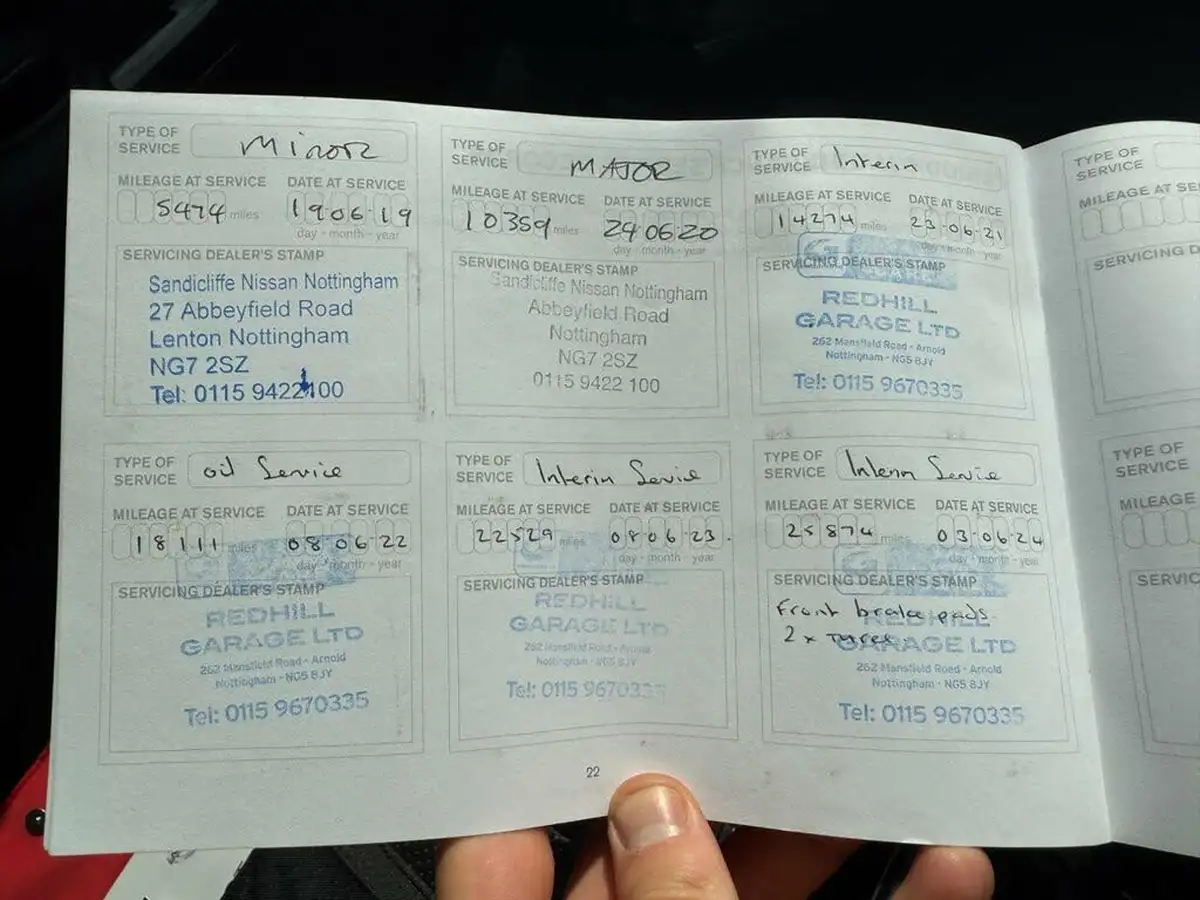 TYPE OF
SERVICE
Minor
MILEAGE AT SERVICE
DATE AT SERVICE
5474 miles
19·06·19
day - month - year
SERVICING DEALER'S STAMP
Sandicliffe Nissan Nottingham
27 Abbeyfield Road
Lenton Nottingham
NG7 2SZ
Tel: 0115 9422100
TYPE OF
SERVICE
MAJOR
MILEAGE AT SERVICE
DATE AT SERVICE
10359 miles
24·06·20
day - month - year
SERVICING DEALER'S STAMP
Sandicliffe Nissan Nottingham
Abbeyfield Road
Nottingham
NG7 2SZ
0115 9422 100
TYPE OF
SERVICE
Interim
MILEAGE AT SERVICE
DATE AT SERVICE
14274 miles
23·06·21
day - month - year
SERVICING DEALER'S STAMP
REDHILL
GARAGE LTD
262 Mansfield Road - Arnold
Nottingham - NG5 8JY
Tel: 0115 9670335
TYPE OF
SERVICE
oil Service
MILEAGE AT SERVICE
DATE AT SERVICE
18111 miles
08·06·22
day - month - year
SERVICING DEALER'S STAMP
REDHILL
GARAGE LTD
262 Mansfield Road - Arnold
Nottingham - NG5 8JY
Tel: 0115 9670335
TYPE OF
SERVICE
Interim Service
MILEAGE AT SERVICE
DATE AT SERVICE
22529 miles
08·06·23
day - month - year
SERVICING DEALER'S STAMP
REDHILL
GARAGE LTD
262 Mansfield Road - Arnold
Nottingham - NG5 8JY
Tel: 0115 9670335
TYPE OF
SERVICE
Interim Service
MILEAGE AT SERVICE
DATE AT SERVICE
25874 miles
03·06·24
day - month - year
SERVICING DEALER'S STAMP
Front brake pads
2 x Tyres
REDHILL
GARAGE LTD
262 Mansfield Road - Arnold
Nottingham - NG5 8JY
Tel: 0115 9670335
22
TYPE OF
SERVICE
MILEAGE AT SE
SERVICING D
TYPE OF
SERVICE
MILEAGE
SERVIC